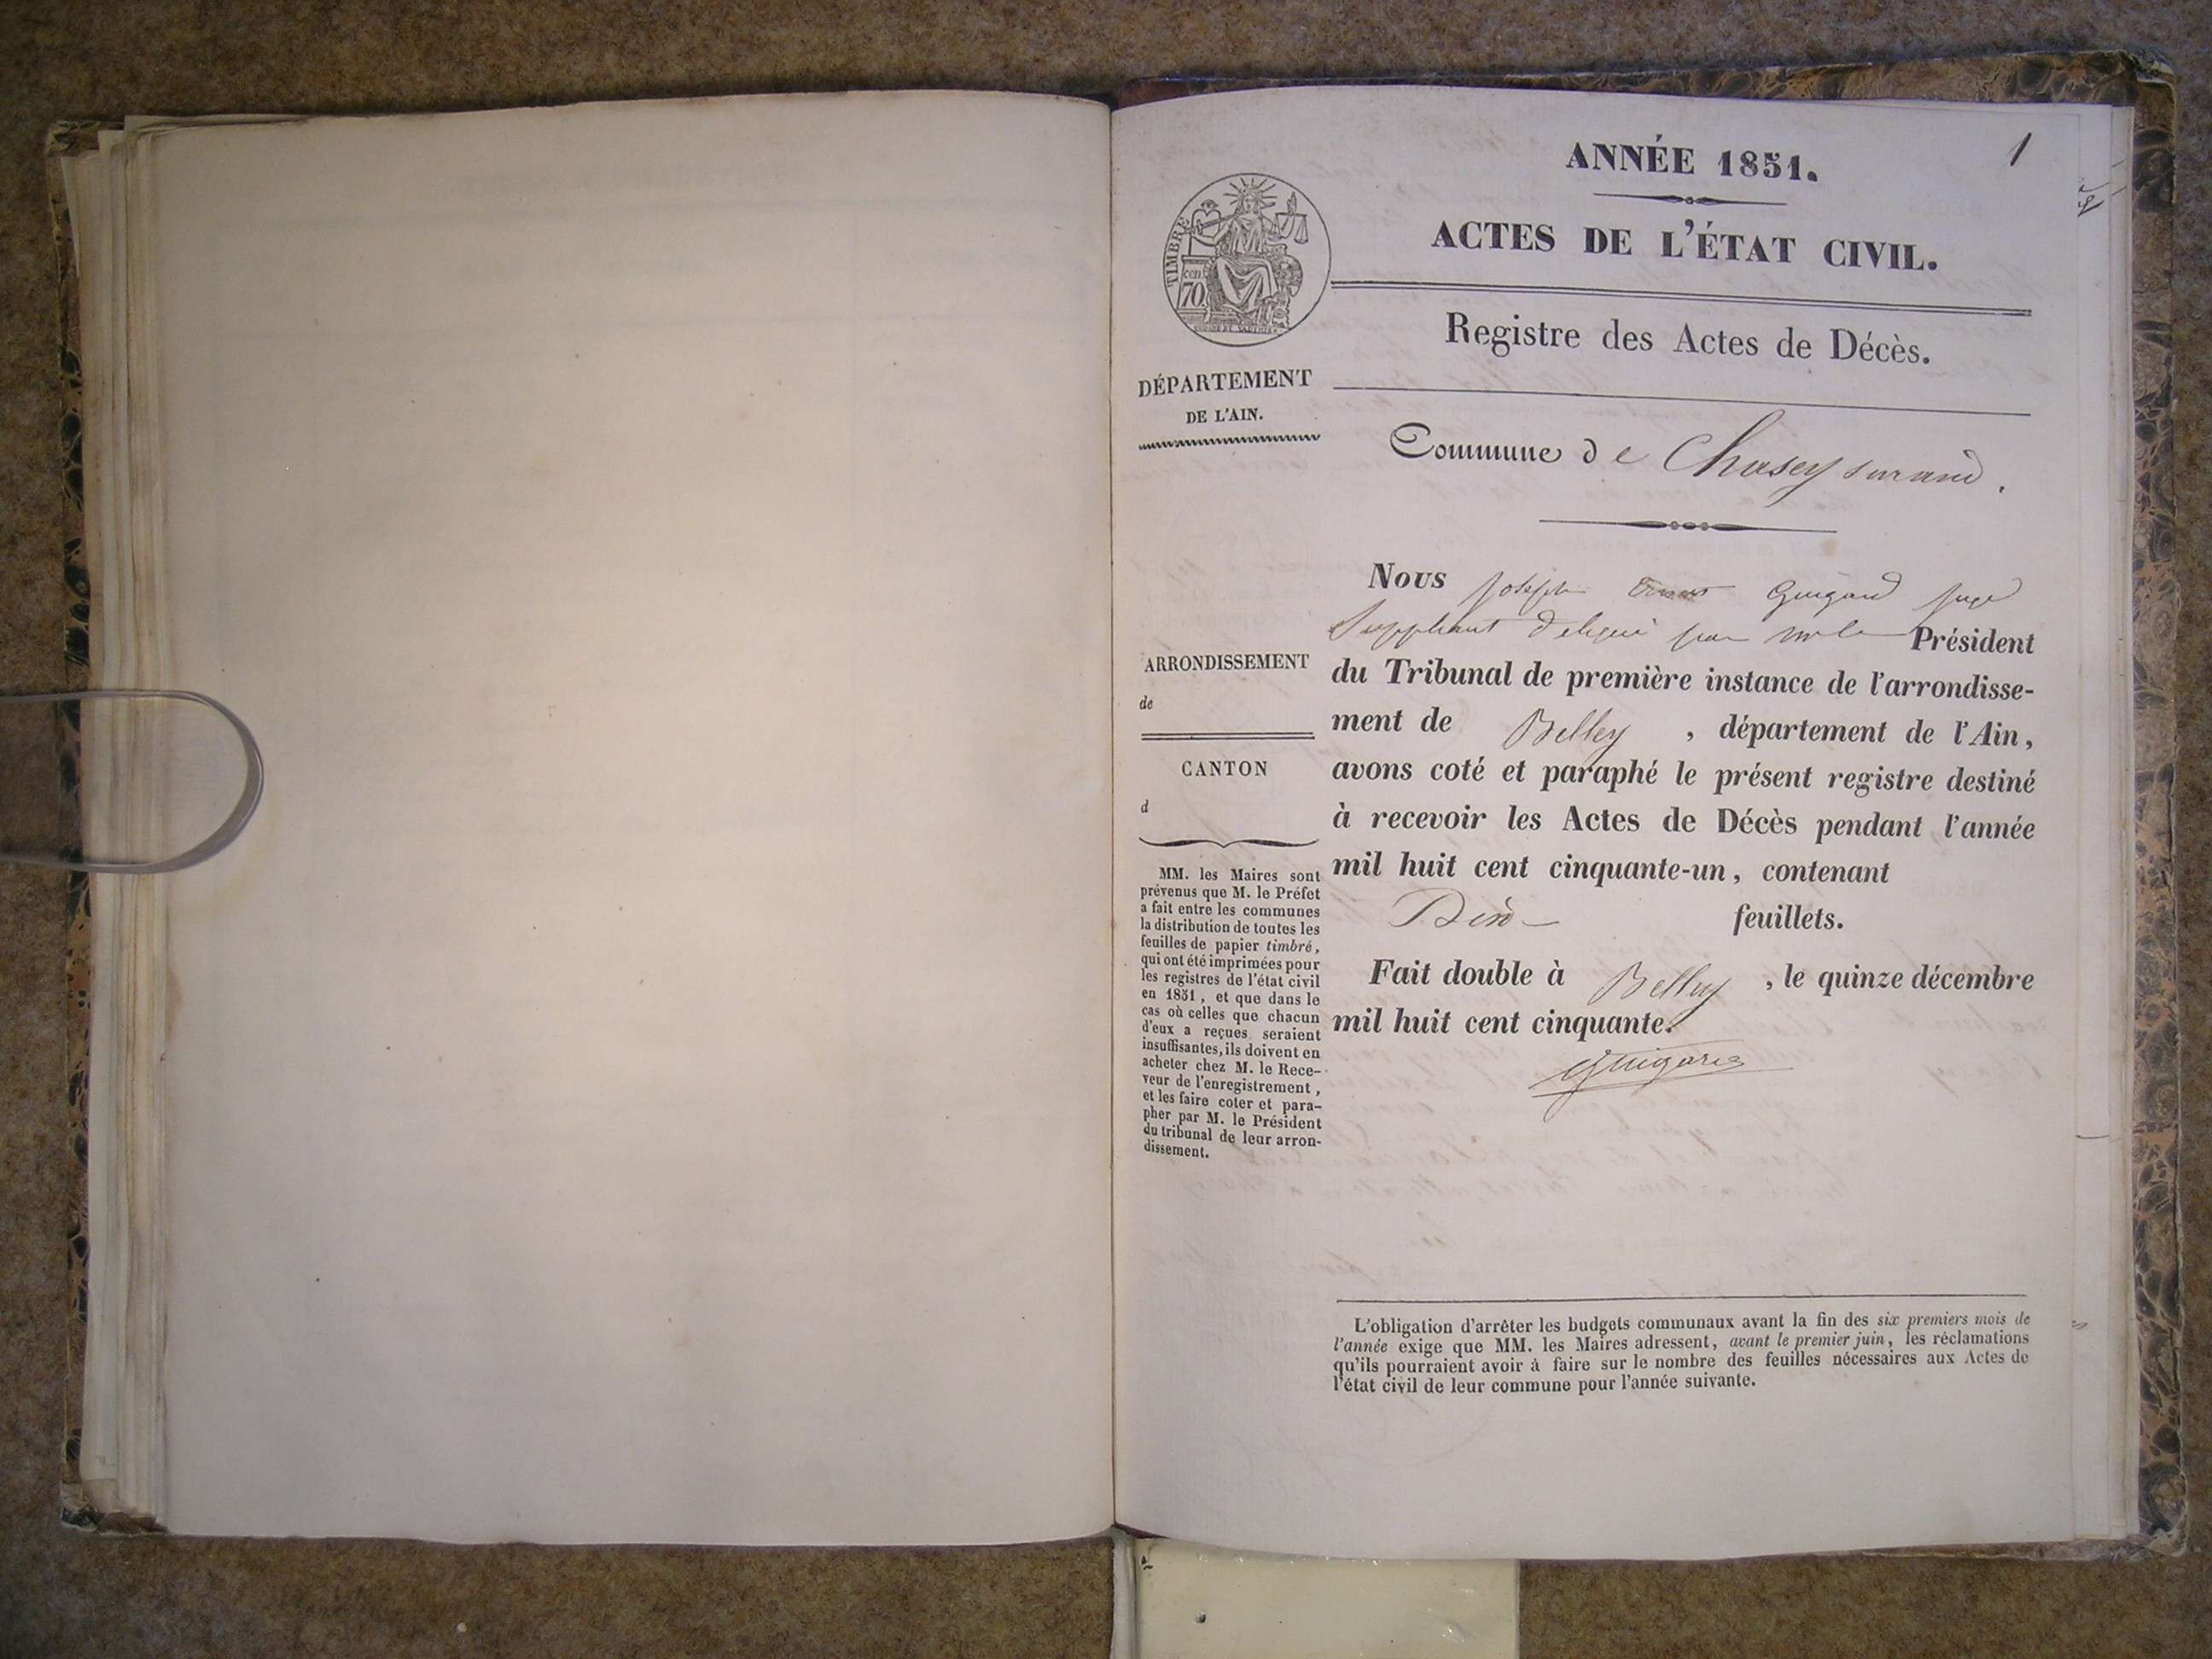 1
ANNÉE 1851.
ACTES DE L'ÉTAT CIVIL.
TIMBRE
cen
70.
Registre des Actes de Décès.
DÉPARTEMENT
DE L'AIN.
Commune de Chasey surain.
Nous Joseph Guigard juge
Suppleant Delegué par mr le Président
du Tribunal de première instance de l'arrondisse-
ment de Belley, département de l'Ain,
avons coté et paraphé le présent registre destiné
à recevoir les Actes de Décès pendant l'année
mil huit cent cinquante-un, contenant
feuillets.
Fait double à Belley, le quinze décembre
mil huit cent cinquante.
ARRONDISSEMENT
de
CANTON
d
MM. les Maires sont
prévenus que M. le Préfet
a fait entre les communes
la distribution de toutes les
feuilles de papier timbré,
qui ont été imprimées pour
les registres de l'état civil
en 1851, et que dans le
cas où celles que chacun
d'eux a reçues seraient
insuffisantes, ils doivent en
acheter chez M. le Rece-
veur de l'enregistrement,
et les faire coter et para-
pher par M. le Président
du tribunal de leur arron-
dissement.
L'obligation d'arrêter les budgets communaux avant la fin des six premiers mois de
l'année exige que MM. les Maires adressent, avant le premier juin, les réclamations
qu'ils pourraient avoir à faire sur le nombre des feuilles nécessaires aux Actes de
l'état civil de leur commune pour l'année suivante.